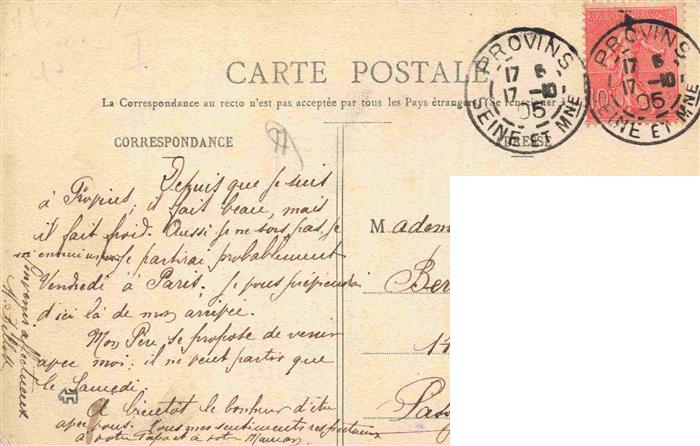 CARTE POSTALE
La Correspondance au recto n'est pas acceptée par tous les Pays étrangers (Se renseigner à
CORRESPONDANCE
ADRESSE
PROVINS
17
17 -10
05
SEINE ET MNE
PROVINS
17
17 -10
05
SEINE ET MNE
10
Depuis que je suis
à Provins, il fait beau, mais
il fait froid. Aussi je ne sors pas, je
m'ennuie je partirai probablement
Vendredi à Paris. Je vous préviendrai
d'ici là de mon arrivée.
Mon Père se propose de venir
avec moi; il ne veut partir que
le Samedi.
A bientôt le bonheur d'être
avec vous. Tous mes sentiments respectueux
à votre Papa et à votre Maman
Souvenir affectueux
Madem
Ber
11
Pass